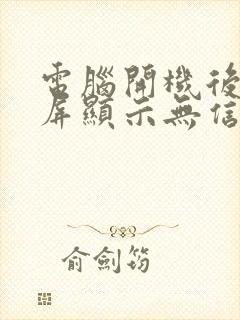 電腦開機後
屏顯示無信
俞劍筠